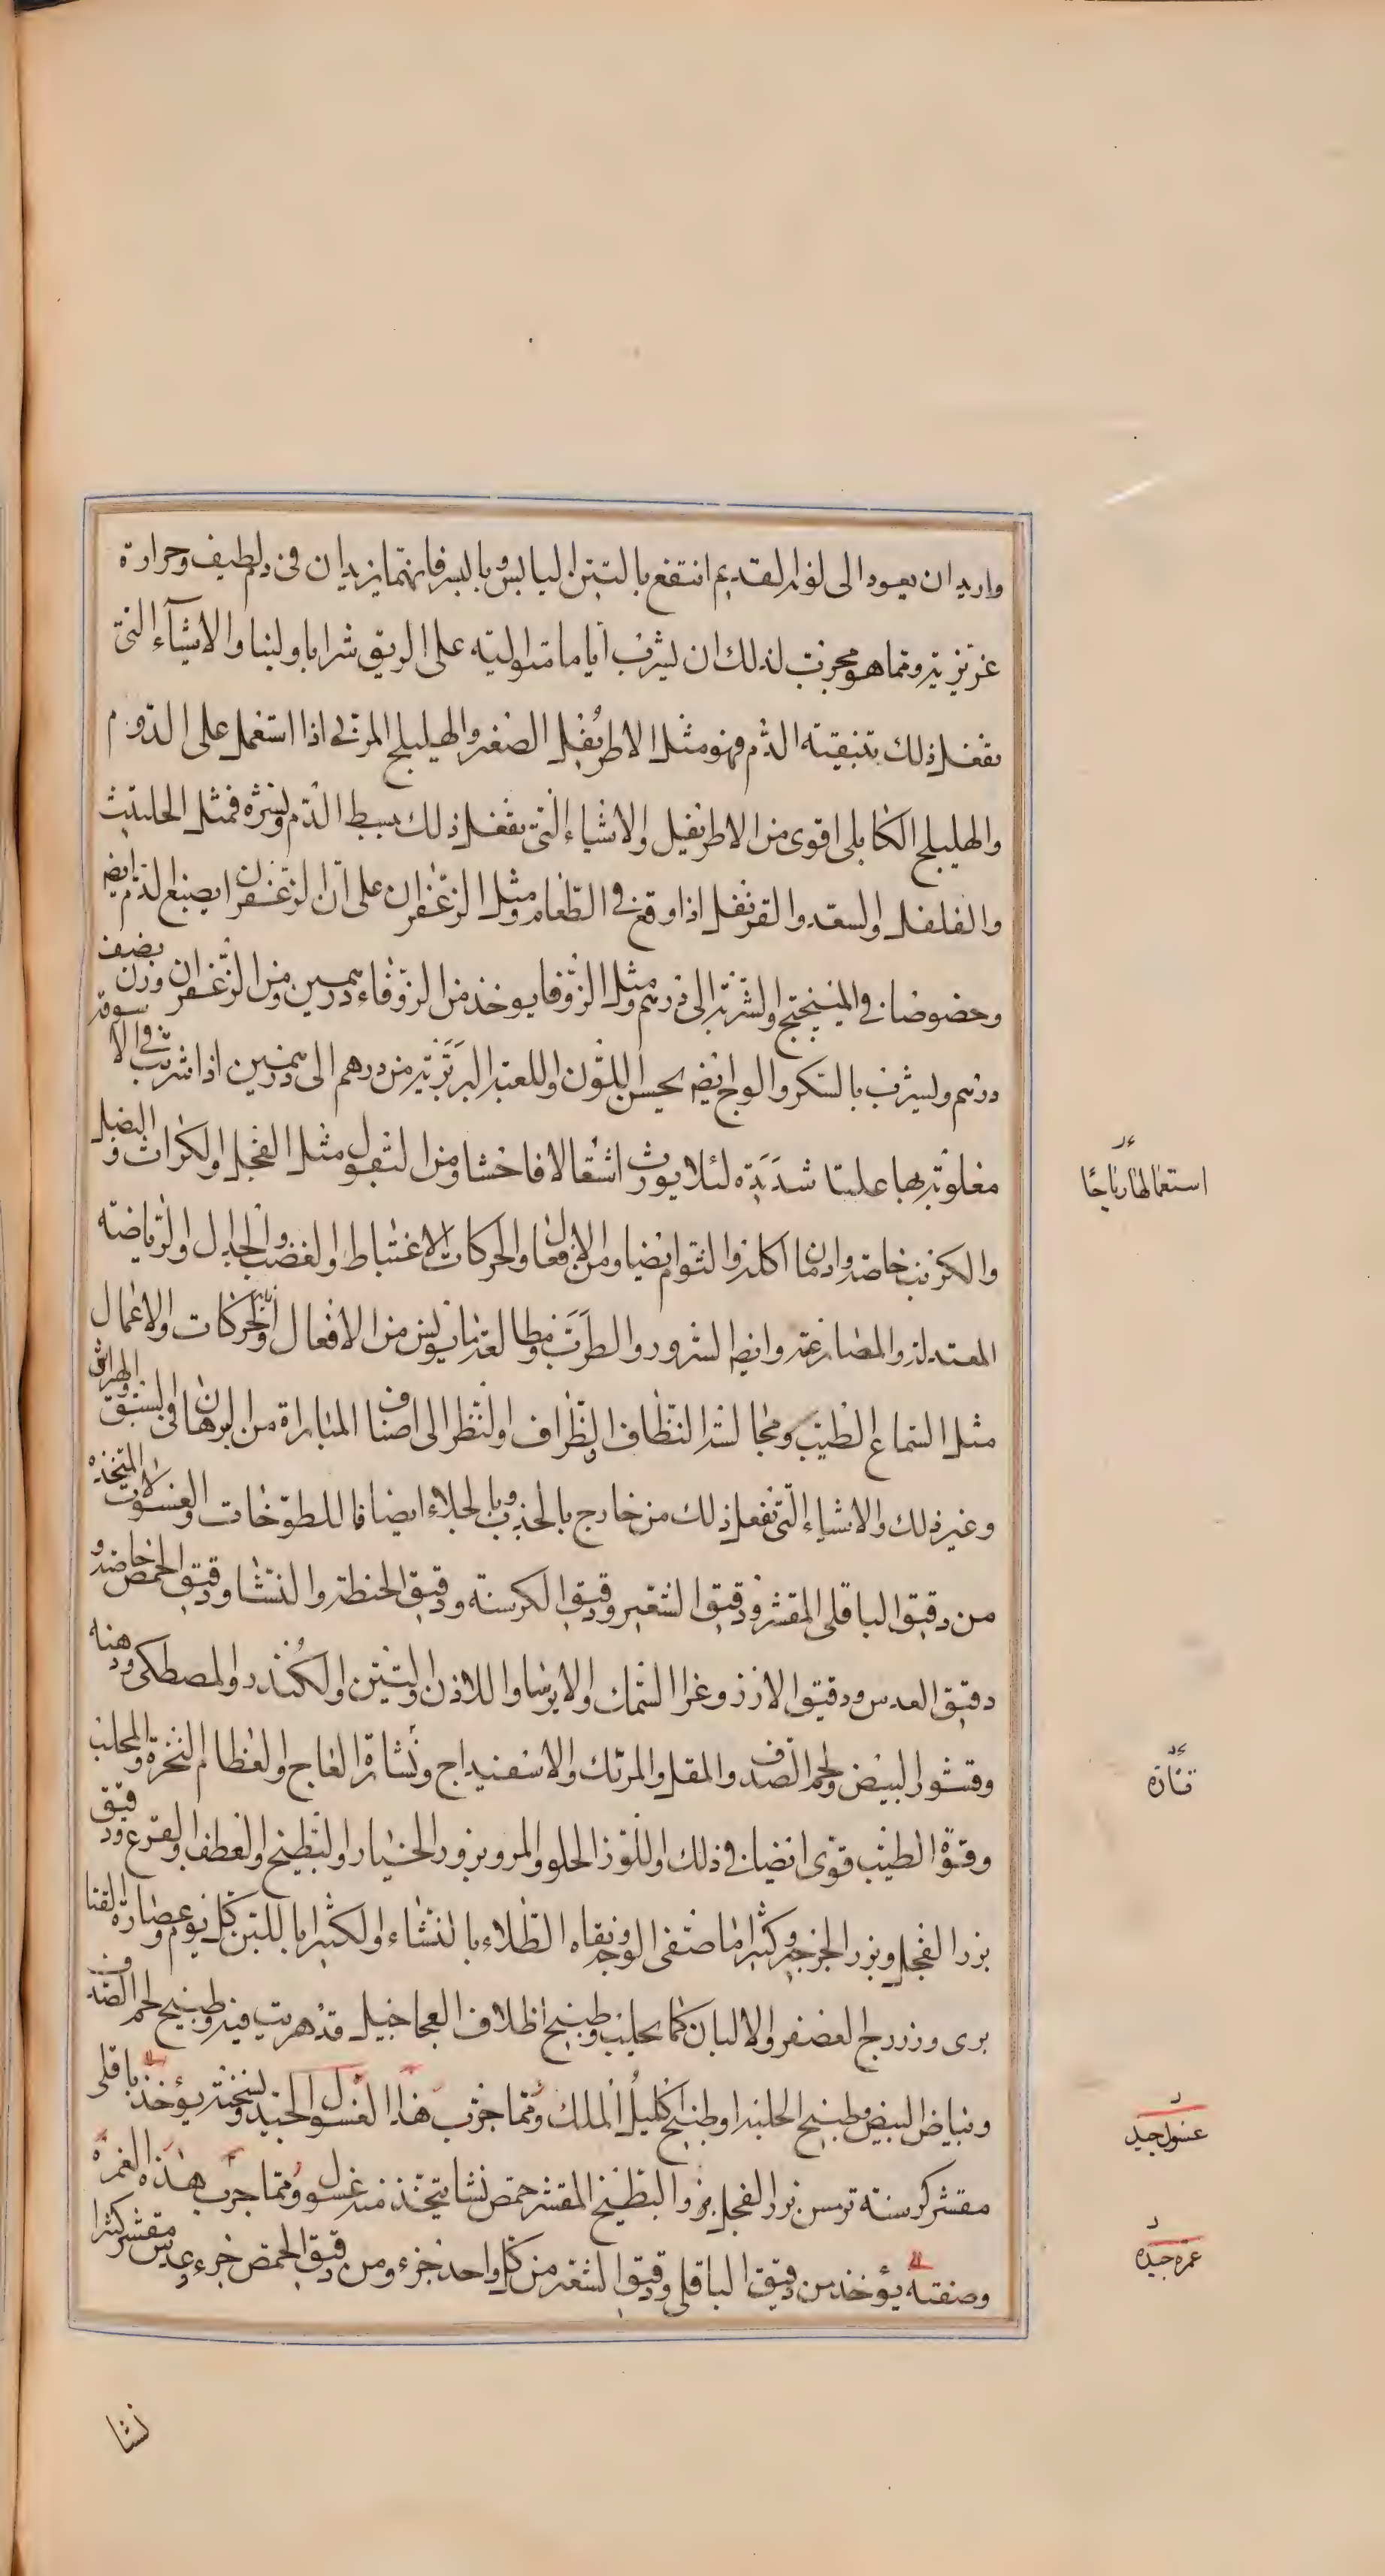 واريد ان يعود الى لونه القديم انتفع بالتين اليابس وبالبسر فانهما يزيدان فى دم لطيف وحرارة
غريزية ومما هو مجرب لذلك ان يشرب اياما متوالية على الريق شرابا ولبنا والاشيآء التى
تفعل ذلك بتنقية الدم فهو مثل الاطريفل الصغير والهليلج المربى اذا استعمل على الدوم
والهليلج الكابلى اقوى من الاطريفيل والاشياء التى تفعل ذلك ببسط الدم ونشره فمثل الحلتيت
والفلفل والسعد والقرنفل اذا وقع فى الطعام ومثل الزعفران على ان الزعفران يصبغ الدم ايض
وخصوصا فى الميبختج والشربة الى درهم ومثل الزوفا يوخذ من الزوفاء درهمين ومن الزعفران وزن نصف
درهم ويشرب بالسكر والوج ايض يحسن اللون واللعبة البربرية من درهم الى درهمين اذا شربت فى الا سوقة
مغلوبة بها غلبتا شديدة لئلا يورث اشتعالا فاحشا ومن البقول مثل الفجل والكراث والبصل
والكرنب خاصة وادمان اكله والثوم ايضا ومن الافعال والحركات الاغتباط والغضب والجدل والرياضة
المعتدلة والمصارعة وايض السرور والطرب ومطالعة ما يونس من الافعال والحركات والاعمال
مثل السماع الطيب ومجالسة النظاف والظراف والنظر الى اصناف المباراة من الرهان فى السبق والهراش
وغير ذلك والاشياء التى تفعل ذلك من خارج بالجذب وبالجلاء ايضا فاللطوخات والغسولات المتخذه
من دقيق الباقلى المقشر ودقيق الشعير ودقيق الكرسنة ودقيق الحنطة والنشا ودقيق الحمص خاصه و
دقيق العدس ودقيق الارز وغرا السمك والايرسا واللاذن والتين والكندر والمصطكى ودهنه
وقشور البيض ولحم الصدف والمقل والمرتك والاسفيداج ونشارة العاج والعظام النخرة والمحلب
وقوة الطيب قوى ايضا فى ذلك واللوز الحلو والمر وبزور الخيار والبطيخ والقطف والقرع ودقيق
بزر الفجل وبزر الجرجير وكثيرا ما صفى الوجه ونقاه الطلاء بالنشاء والكثيرا باللبن كل يوم وعصارة القنا
برى وزردج العصفر والالبان كما يحلب وطبيخ اظلاف العجاجيل قد هريت فيه وطبيخ لحم الصدف
وبياض البيض وطبيخ الحلبة او طبيخ اكليل الملك ومما جرب هذا الغسول الجيد ونسخته يؤخذ باقلى
مقشر كرسنة ترمس بزر الفجل بزر البطيخ المقشر حمص نشا يتخذ منه غسول ومما جرب هذه الغمرة
وصنفته يؤخذ من دقيق الباقلى ودقيق الشعير من كل واحد جزء ومن دقيق الحمص جزء وعدس مقشر كثيرا
نشا
استعمالها رباحًا
غسول جيد
غمرة جيدة